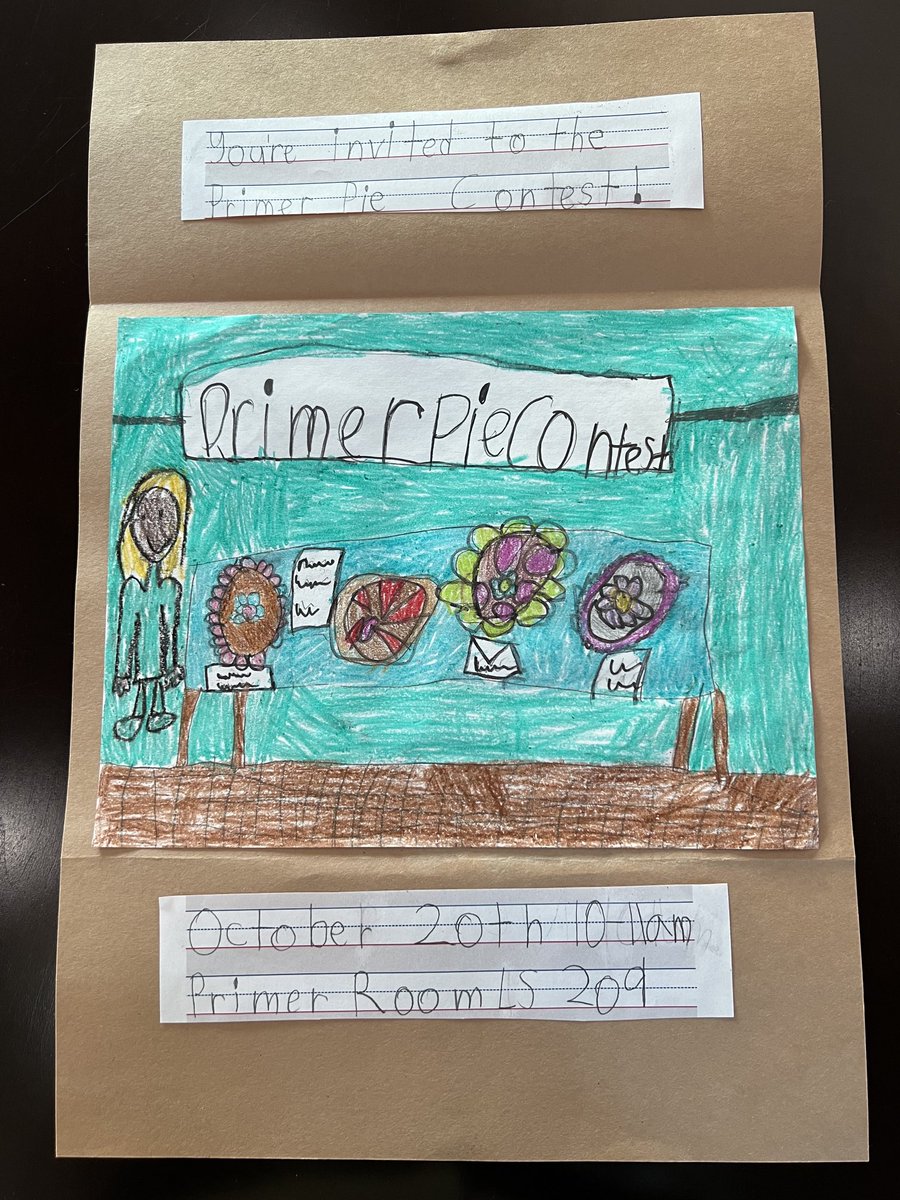 You're invited to the
Primer Pie Contest!
Primer Pie Contest
October 20th 10 11am
Primer Room LS 209